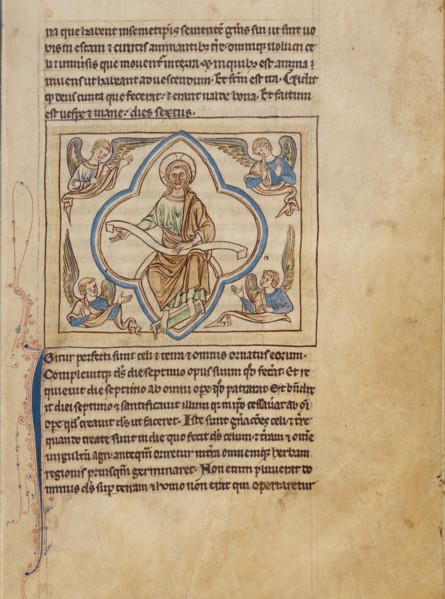 na que habent in semetip̄is sementē gn̄is sui ut sint uo
bis in escam ⁊ cunctis animantibꝫ tr̄e· omniqꝫ uolucri ce
li ⁊ uniuˀsis que mouent᷑ in terra· ⁊ in quibꝫ est anima ui
uens ut habeant ad uescendum· Et fc̄m est ita· Vidit
qꝫ deus cuncta que fecerat· ⁊ erant ualde bona· Et factum
est uesꝑe ⁊ mane· dies sextus·
Igitur perfecti sunt celi ⁊ terra ⁊ omnis ornatus eorum·
Compleuitqꝫ ds̄ die septimo opus suum qđ fecˀat· Et re
quieuit die septimo ab omni oꝑe qđ patrarat· Et bn̄dix̄
it diei septimo ⁊ sanctificauit illum qꝛ in ip̄o cessauat ab oī
oꝑe qđ creauit ds̄ ut faceret· Iste sunt gn̄acōes celi ⁊ tr̄e
quando create sunt in die quo fecit ds̄ celum ⁊ tˀram ⁊ omne
uirgultū agri antequā oriretur in tˀra omnemqꝫ herbam
regionis priusquā germinaret· Non enim pluuerat do
minus ds̄ suꝑ terram ⁊ homo non erat qui operaretur